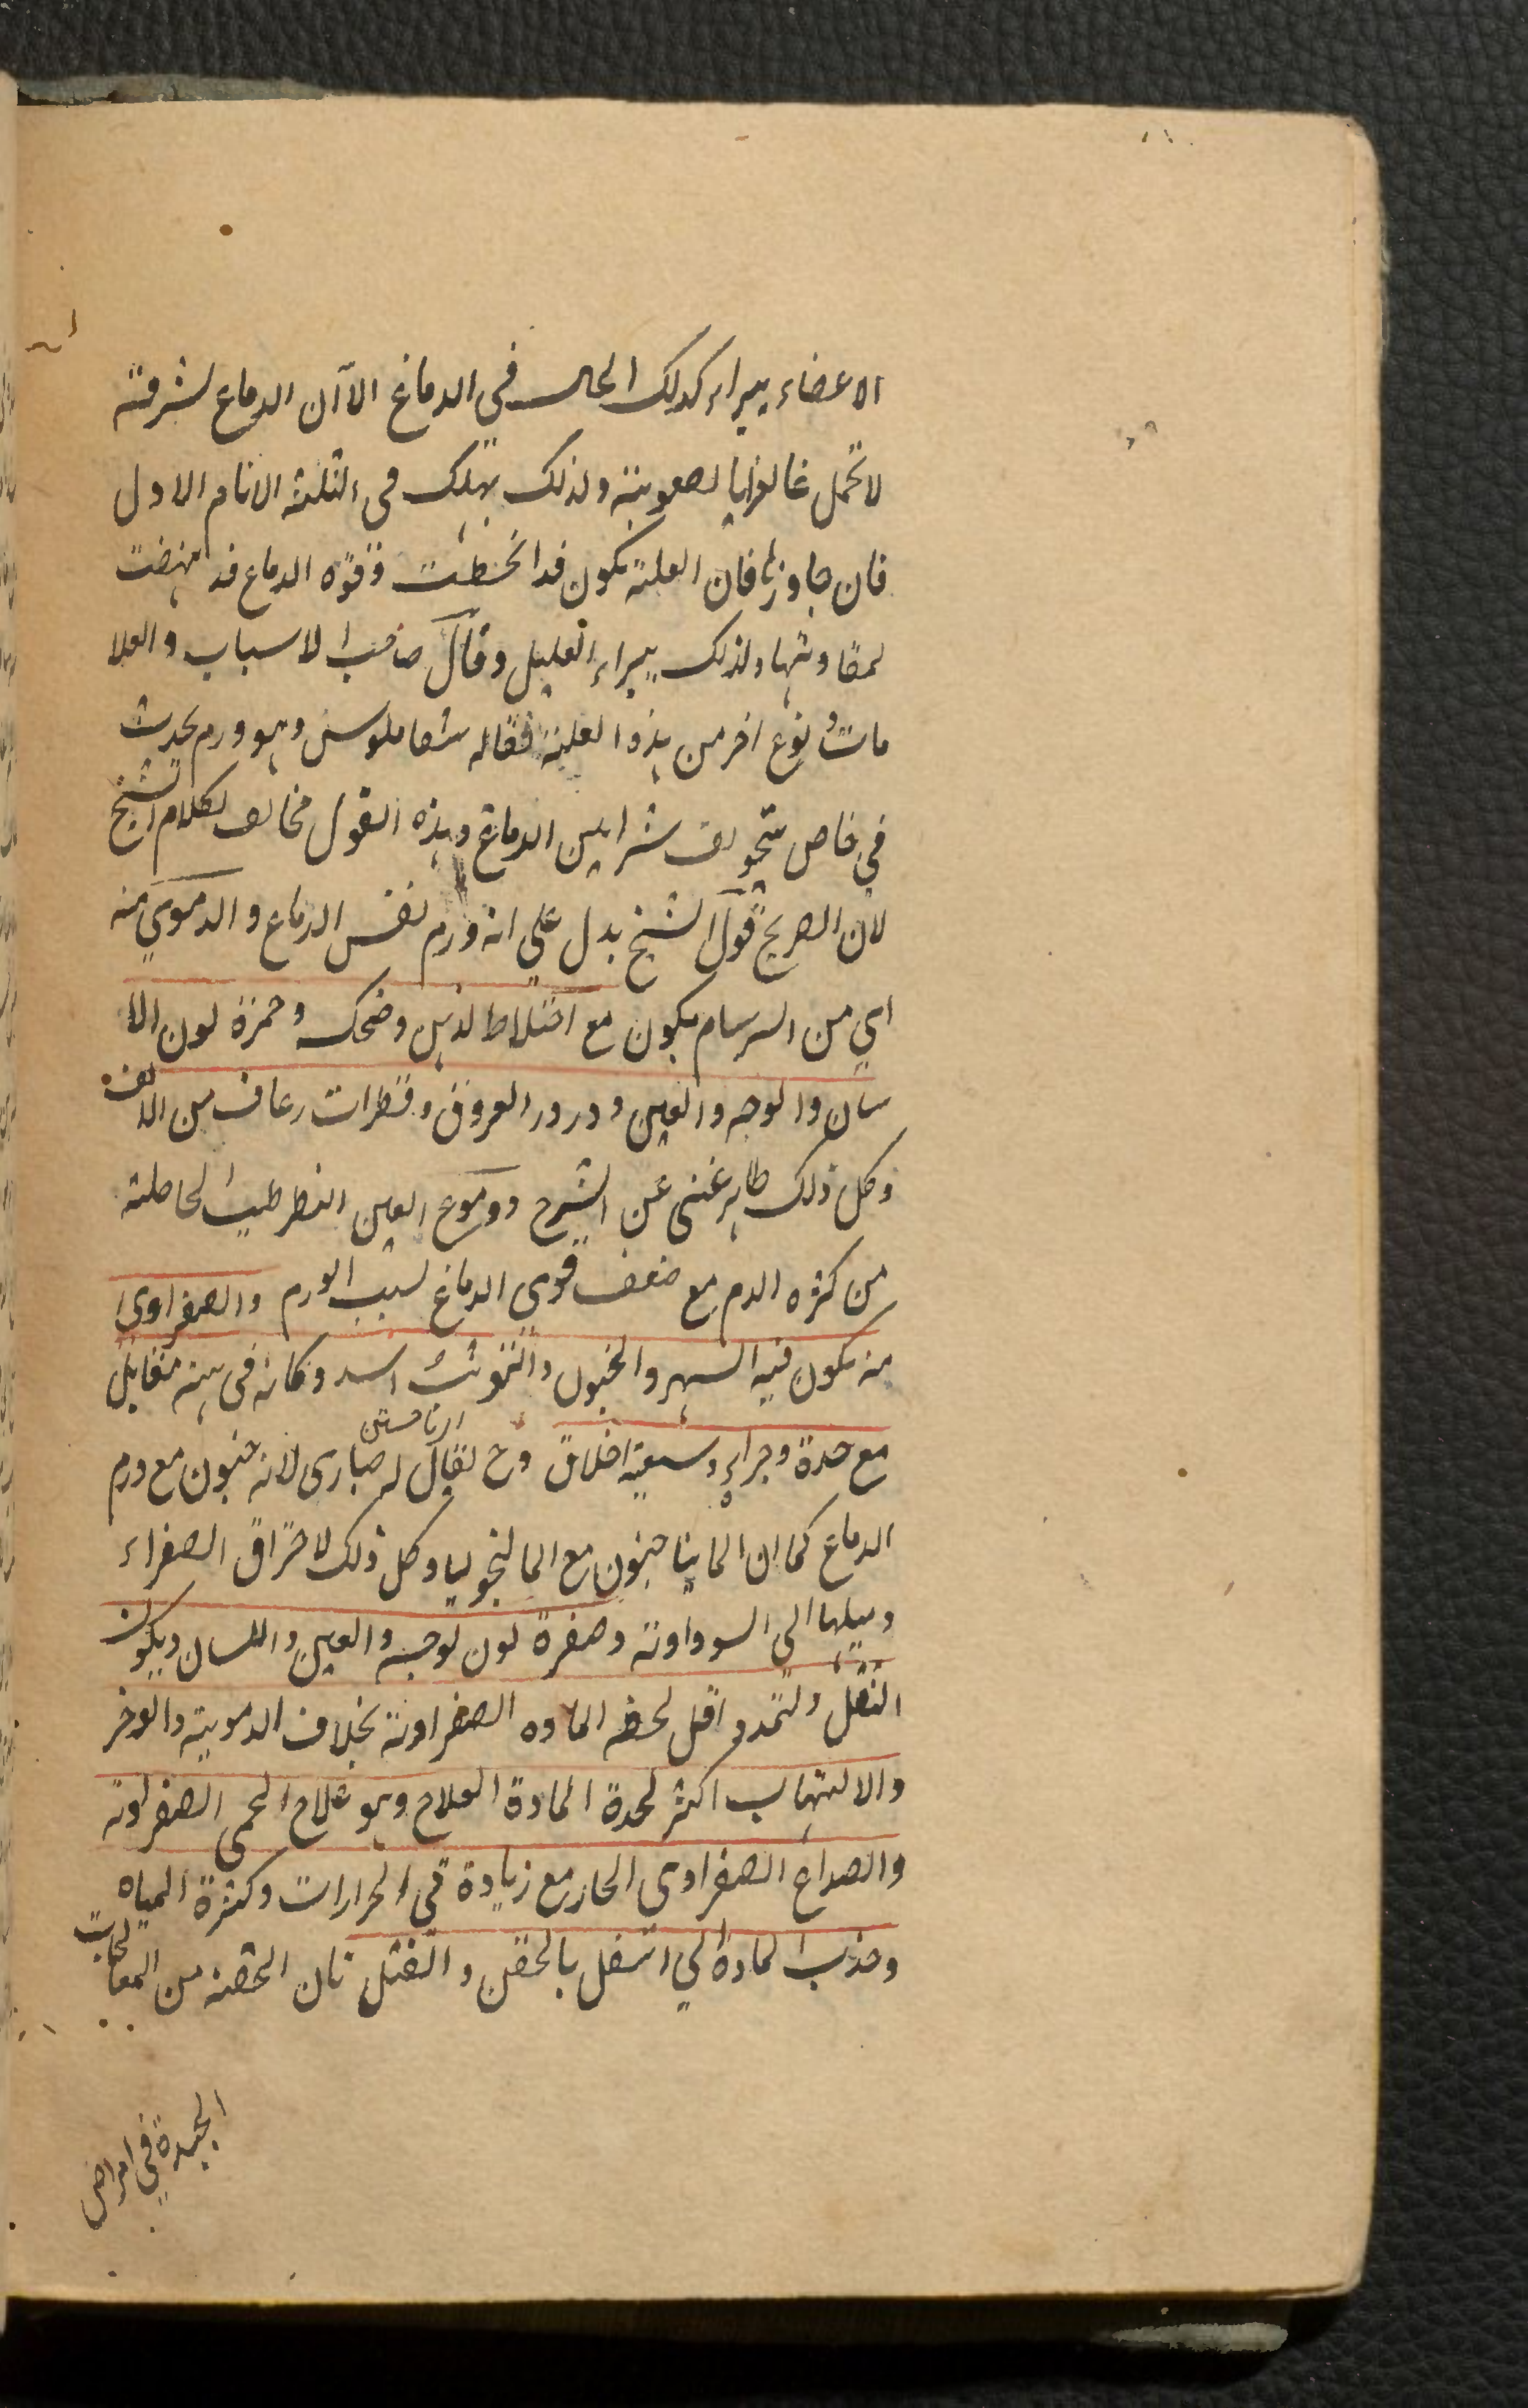 الاعضاء يبراء كذلك الحال في الدماغ الا ان الدماغ لشرفته
لا تحمل غالبا لصعوبته ولذلك يهلك في الثلثة الايام الاول
فان جاوزها فان العلة يكون قد انحطت وقوة الدماغ قد نهضت
لمقاومتها ولذلك يبراء العليل وقال صاحب الاسباب والعلا
مات نوع اخر من هذه العلة فقاله شقاملوس وهو ورم يحدث
في خاص تجويف شرايين الدماغ وهذه القول مخالف لكلام الشيخ
لان الصريح قول الشيخ يدل علي انه ورم نفس الدماغ والدموي منه
اي من السرسام يكون مع اختلاط الذهن وضحك وحمرة لون الا
سان والوجه والعين ودرور العروق وقطرات رعاف من الانف
وكل ذلك ظاهر غني عن الشرح ودموع العين الحاصلة
من كثره الدم مع ضعف قوى الدماغ لسبب الورم والصفراوى
منه يكون فيه السهر والجنون والتوثب اسد وكانه في هيئة مقاتل
مع حدة وجراءه وسبعية اخلاق وح يقال له صبارى لانه جنون مع ورم
الدماغ كما ان المانيا جنون مع المالنخوليا وكل ذلك لاحتراق الصفراء
وميلها الى السوداوية وصفرة لون الوجه والعين واللسان ويكون
الثقل والتمدد اقل لخفه الماده الصفراوية بخلاف الدموية والوخز
والالتهاب اكثر لحدة المادة العلاج وهو علاج الحمى الصفراوية
والصداع الصفراوى الحار مع زيادة في الحرارات وكثرة المياه
وجذب المادة الي اسفل بالحقن والفتل فان الحقنة من المعالجات
الجيدة في امراض